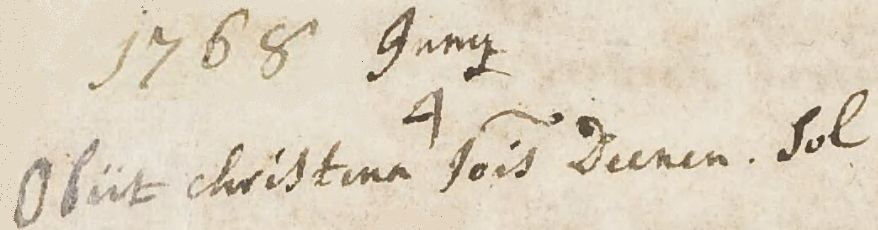 1768 Juny
4
Obiit christina Jois Deenen. Sol